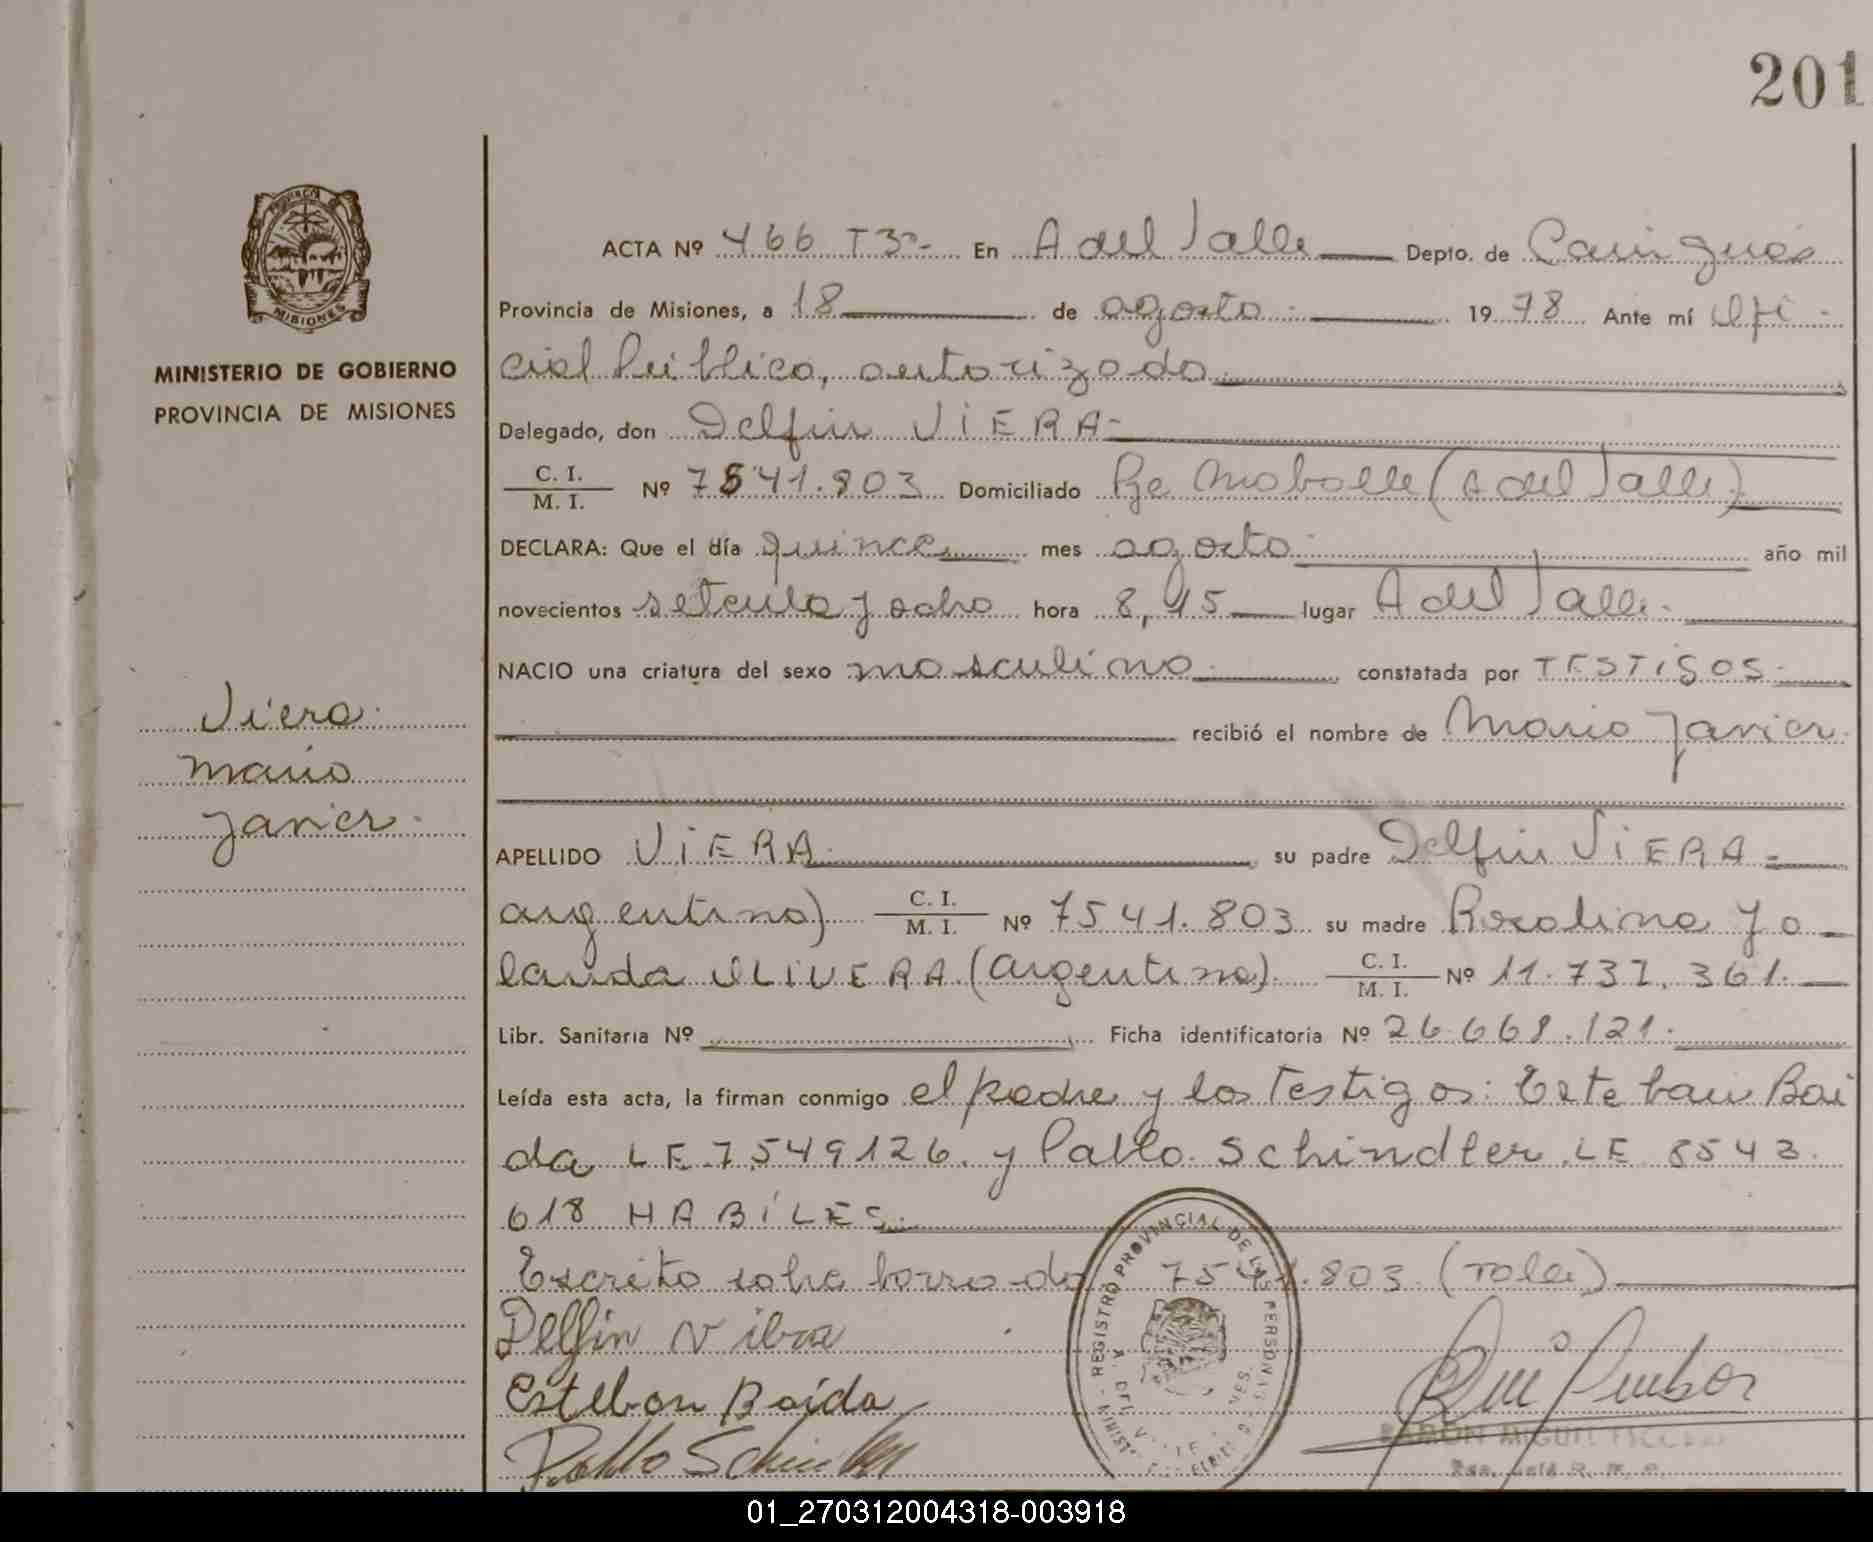 201
ACTA Nº 466 T3º- En A del Valle Depto. de Cainguás
Provincia de Misiones, a 18 de agosto 1978 Ante mí Ofi-
cial Público, autorizado
MINISTERIO DE GOBIERNO
PROVINCIA DE MISIONES
Delegado, don Delfin ViERA-
C. I.
M. I. Nº 7541.803 Domiciliado Pje (A del Valle)
DECLARA: Que el día quince mes agosto año mil
novecientos setenta y ocho hora 8,45 lugar A del Valle.
NACIO una criatura del sexo masculino constatada por TESTiGOS.
recibió el nombre de Mario Javier.
Viera.
Mario
Javier.
APELLIDO ViERA su padre Delfin ViERA
argentino) C. I.
M. I. Nº 7541.803 su madre Rosalina Yo-
landa OLiVERA (argentina). C. I.
M. I. Nº 11.737.361.
Libr. Sanitaria Nº Ficha identificatoria Nº 26.668.121.
Leída esta acta, la firman conmigo el padre y los Testigos: Esteban Boi
da LE 7549126. y Pablo Schindler LE 8543.
618 HABiLES.
Escrito sobre borrado 7541.803 (vale)
Delfin Vibra
Esteban Boida
Pablo
REGISTRO PROVINCIAL DE LAS PERSONAS
RAMON MIGUEL
PROVINCIA
MISIONES
01_270312004318-003918